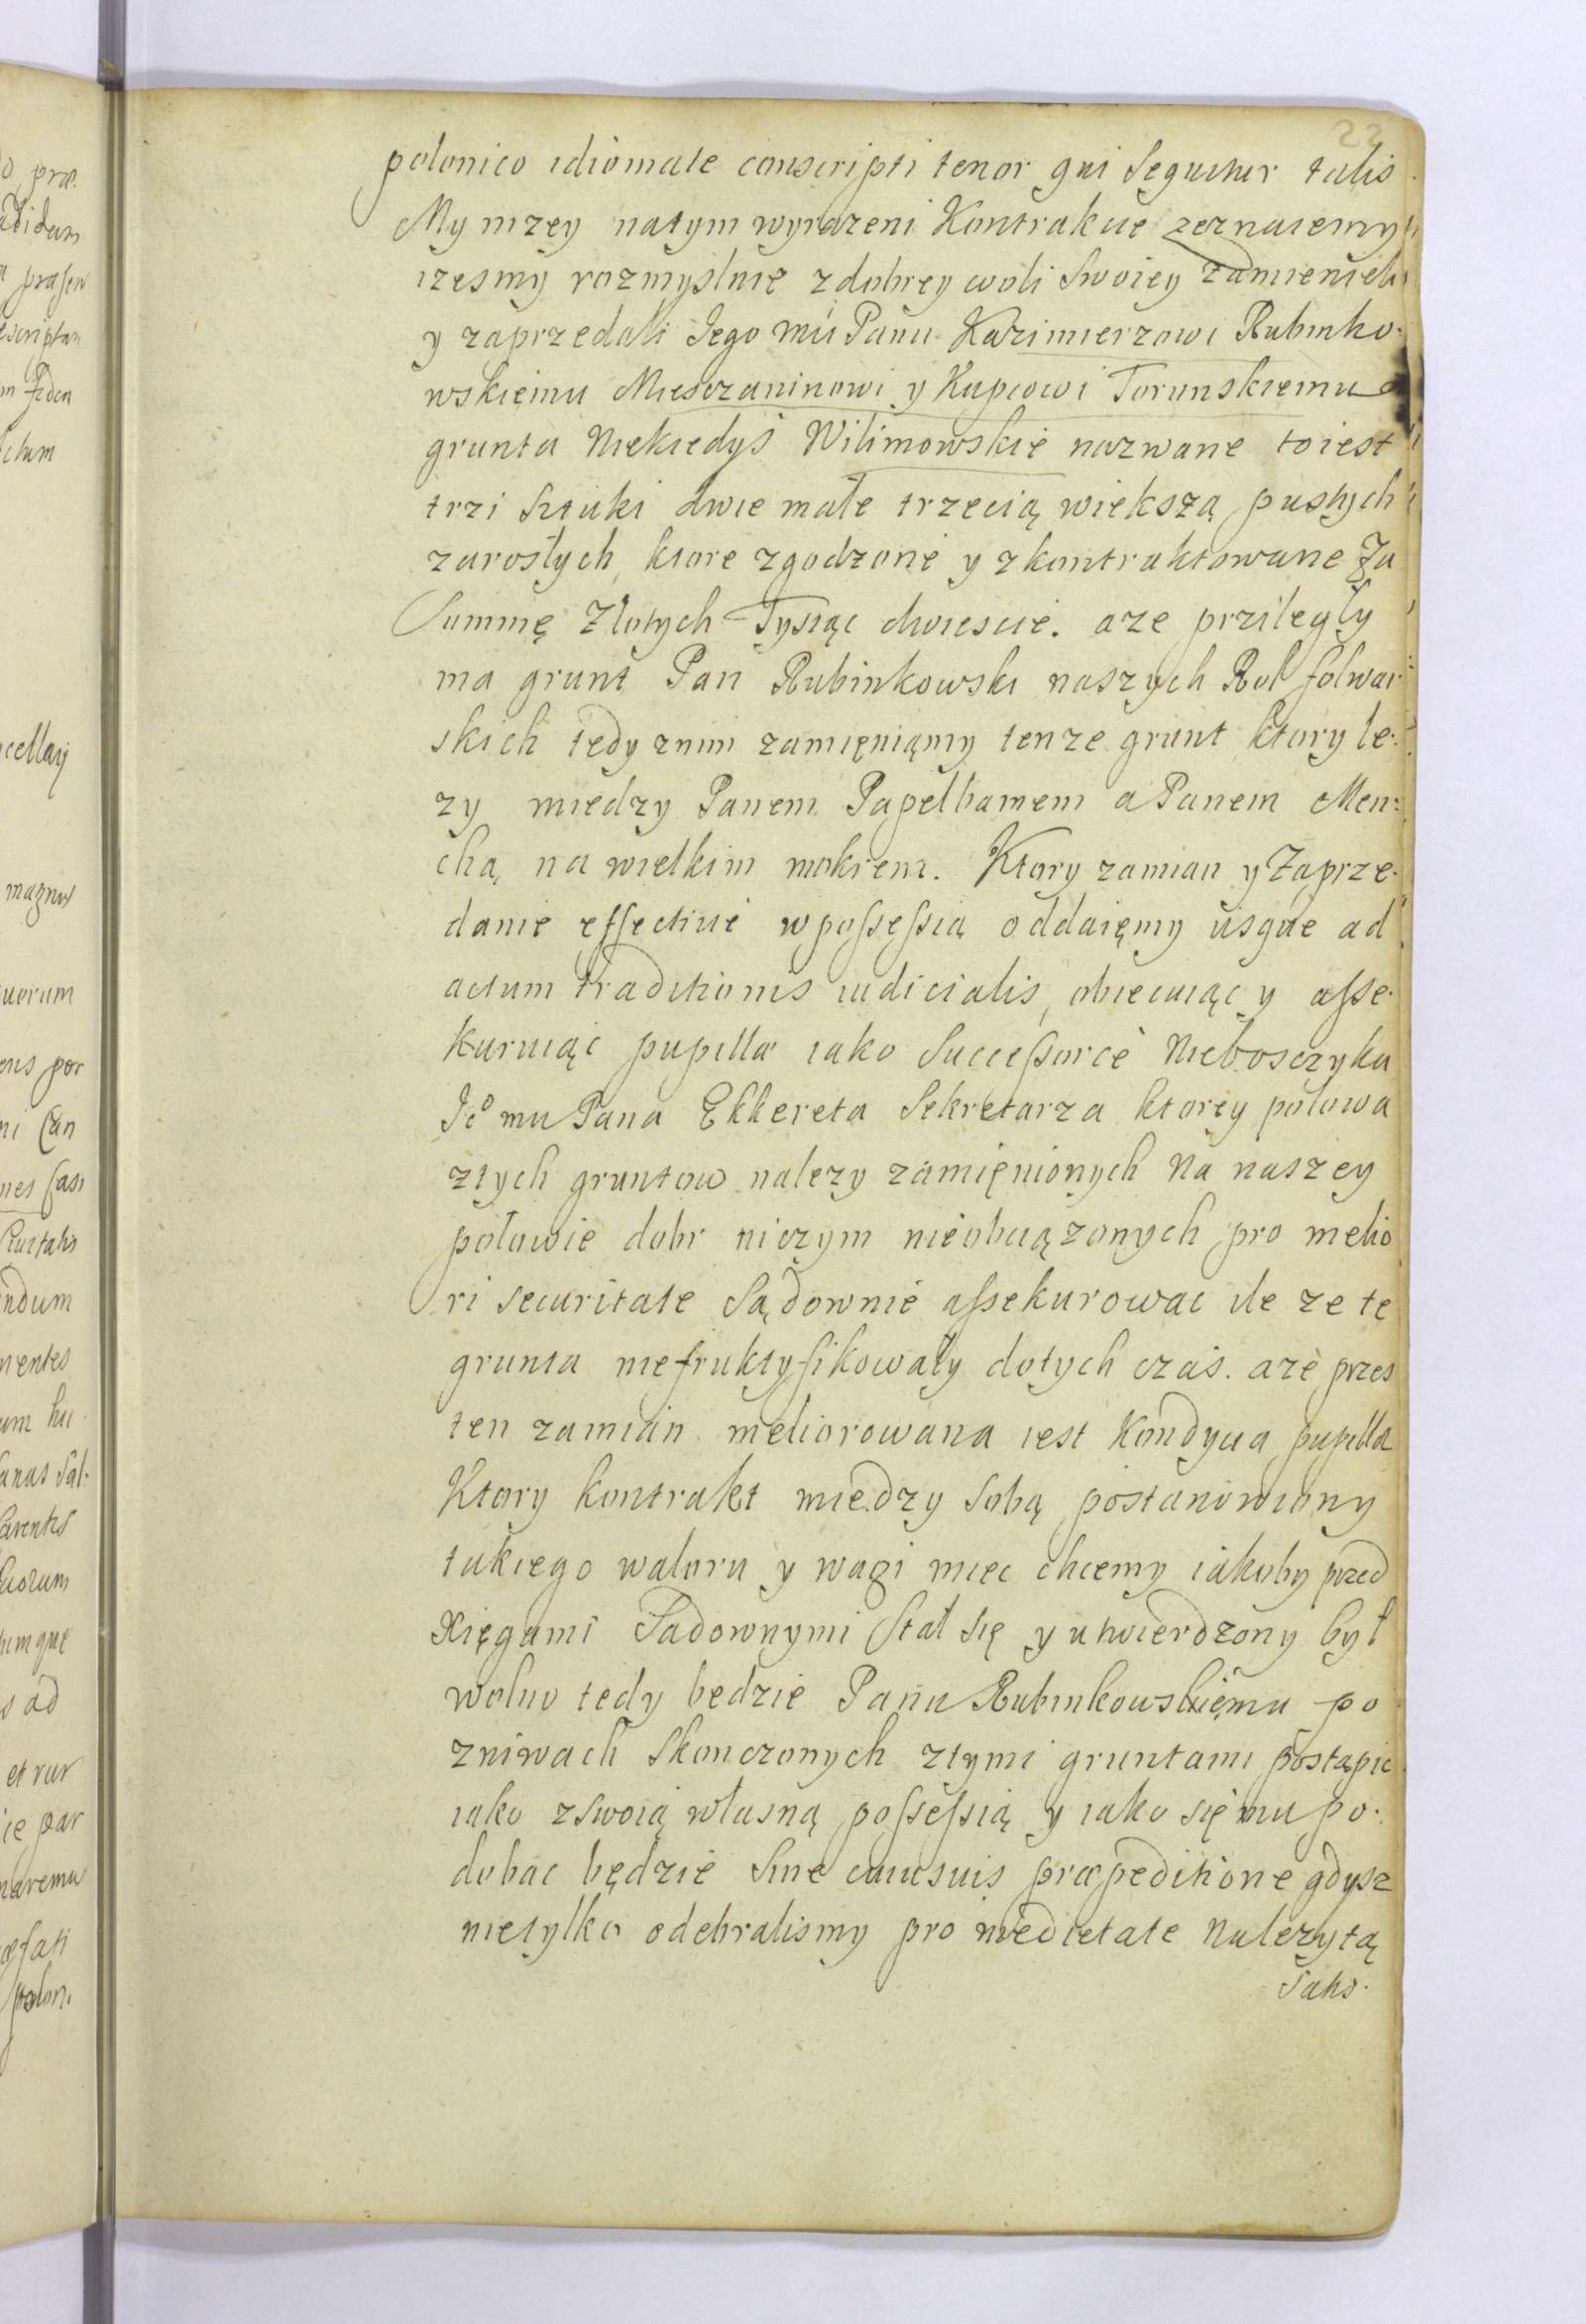 22
polonico idiomate conscripti tenor qui Sequitur talis
My nizey natym wyrazeni Kontrakcie zeznaiemy
izesmy rozmyslnie z dobrey woli Swoiey zamienieli
y zaprzedali Jego mu Panu Kazimierzowi Rubinko-
wskiemu Miesczaninowi y Kupcowi Torunskiemu
grunta Niekiedyś Wilimowskie nazwane toiest
trzi Sztuki dwie małe trzecią większą pustych
zarosłych, ktore zgodzone y zkontraktowane Za
Summę Złotych Tysiąc dwiescie. aze prziległy
ma grunt Pan Rubinkowski naszych Rol folwar-
skich tedy znim zamięniąmy tenze grunt ktory le:
zy miedzy Panem Papelbamem a Panem Men:
chą na wielkim mokrem. Ktory zamian y Zaprze-
danie effective wpossessią oddaięmy usque ad
actum traditionis iudicialis, obiecuiąc y asse-
kuruiąc pupilla iako Successorcè Niebosczyka
Jeo mu Pana Ekkereta Sekretarza ktorey polowa
ztych gruntow nalezy zamięnionych Na naszey
połowie dobr niczym nieobciązonych pro melio
ri securitate Sądownie assekurowac ile ze te
grunta niefruktyfikowały dotych czas. aze przes
ten zamian meliorowana iest Kondycia pupilla
Ktory kontrakt miedzy Sobą postanowiony
takiego waloru y wagi miec chcemy iakoby przed
Xięgami Sadownymi Stał się y utwierdzony był
wolno tedy będzie Panu Rubinkowskięmu po
zniwach Skonczonych ztymi gruntami postąpic
iako z Swoią własną possessią y iako się mu po-
dobac będzie Sine cuiusuis præpeditione gdysz
nietylko odebralismy pro medietate Nalezytą
Saks.